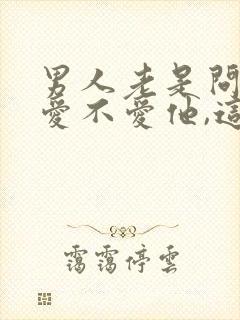 男人老是問
愛不愛他,這
靄靄停雲